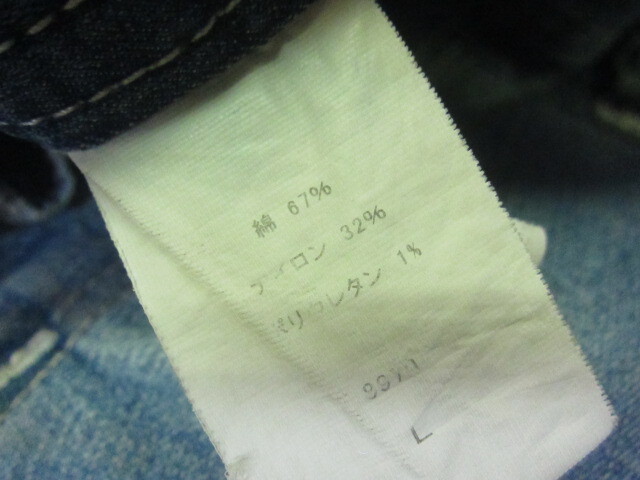 綿 67%
ナイロン 32%
ポリウレタン 1%
L